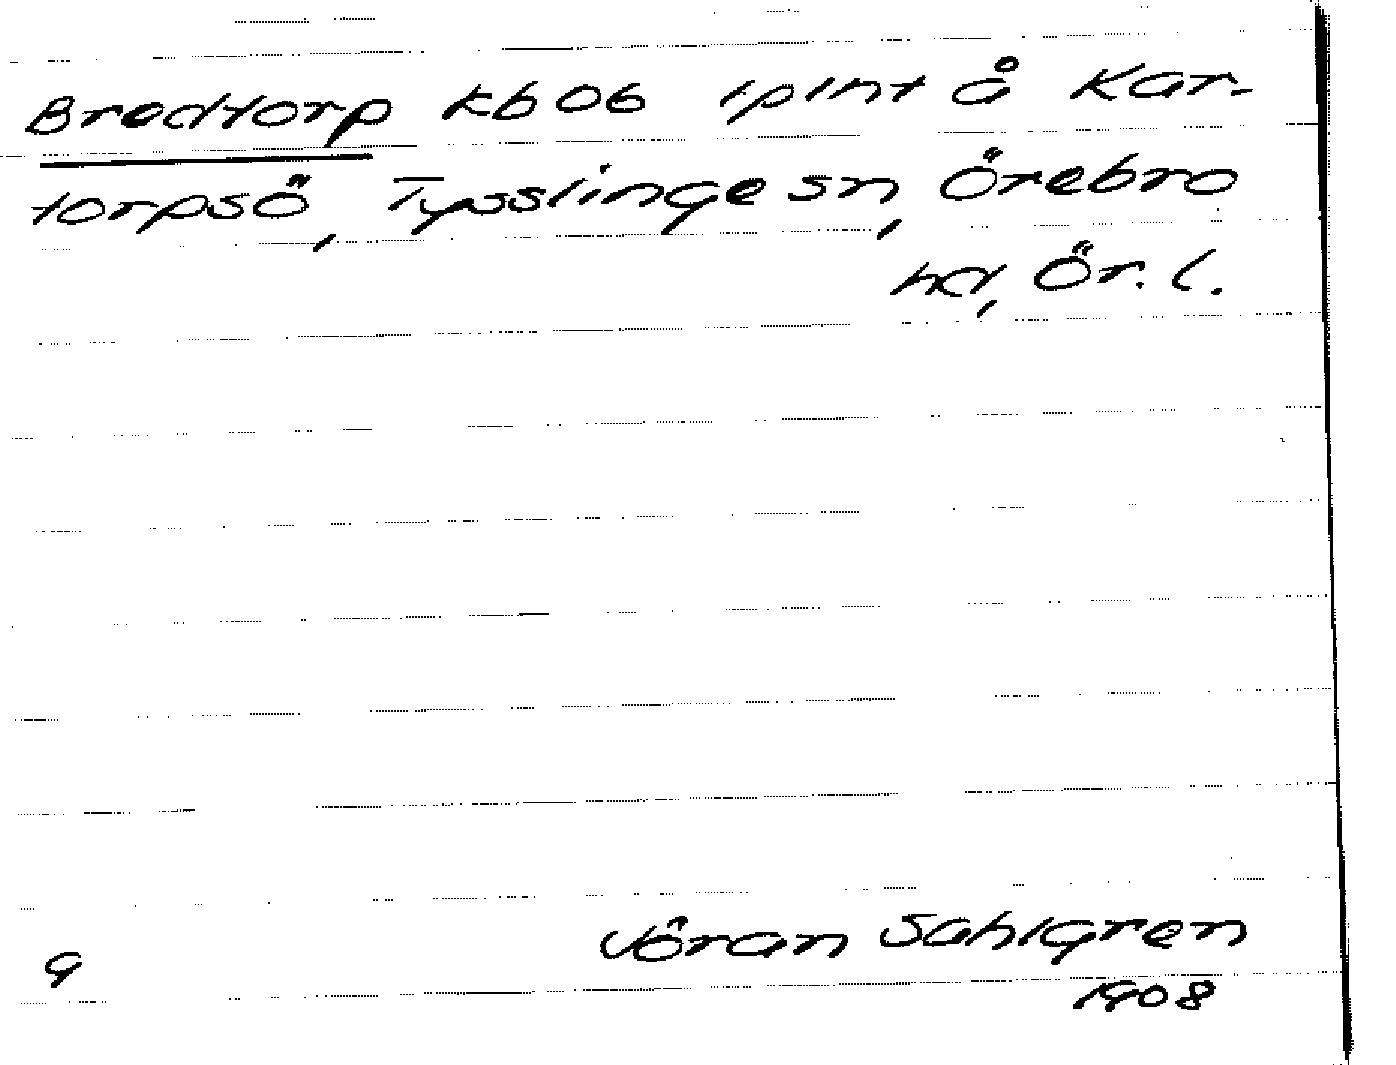 Bredtorp kb 06 lplht å Kar-
torpsö, Tysslinge sn, Örebro
hd, Ör. l.
Jöran Sahlgren
9
1908